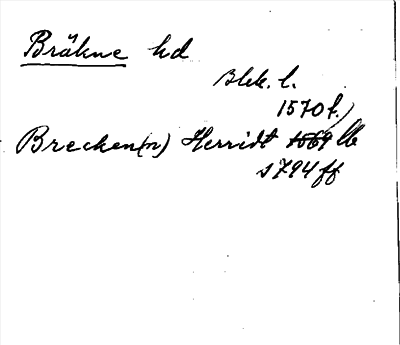 Bräkne hd
Blek. l.
1570 f.)
Brecken(n) Herridt 1569 lb
s 794 ff